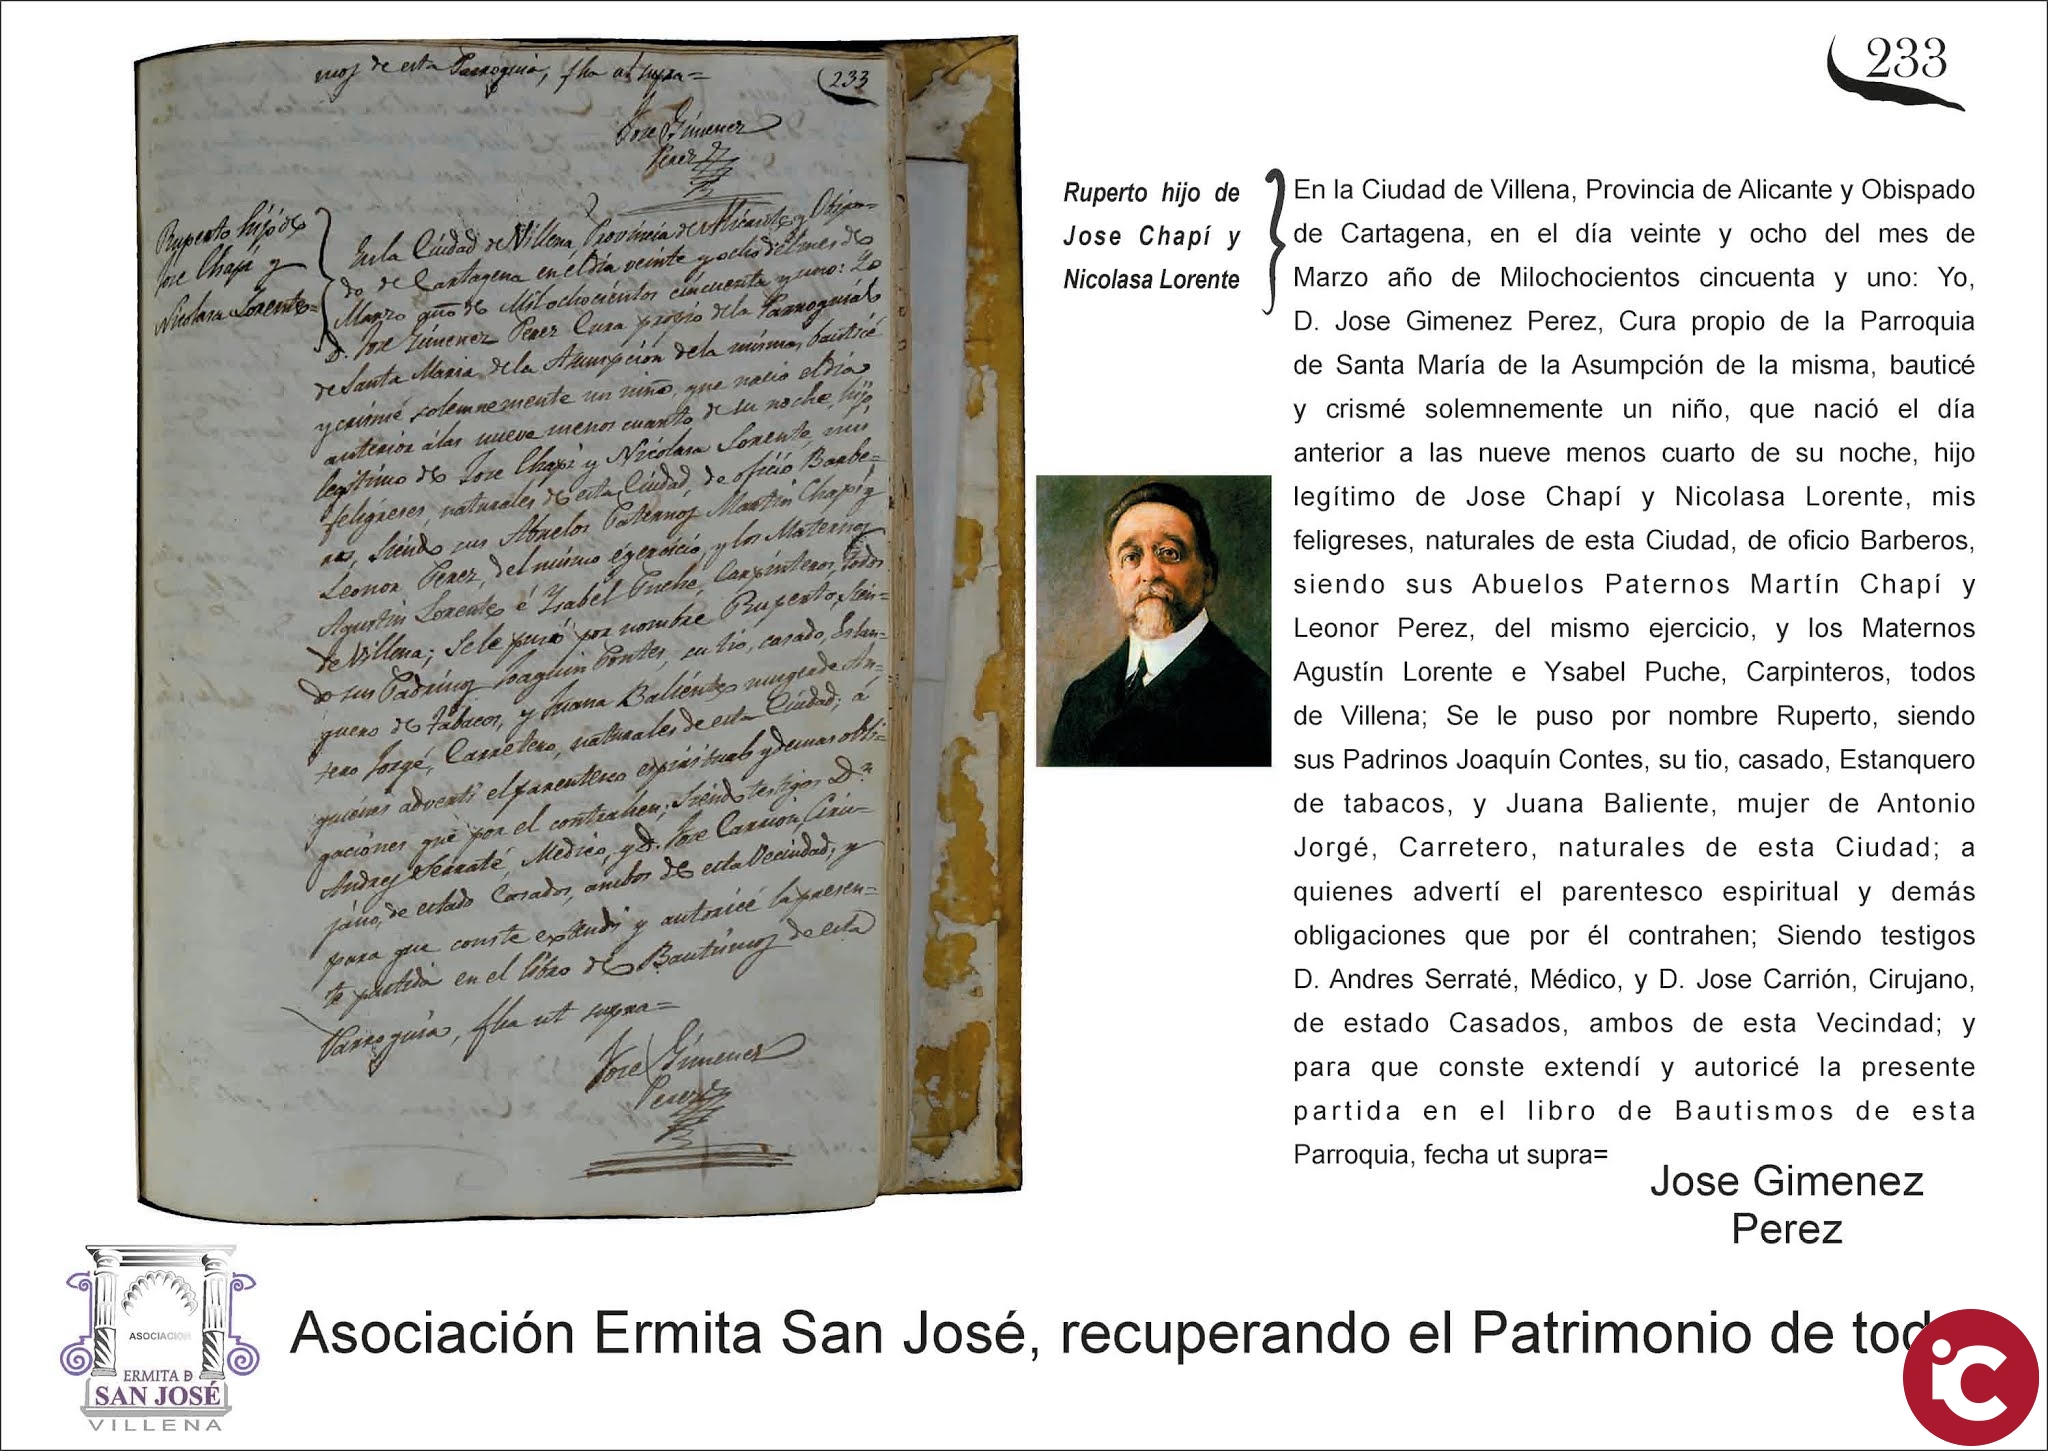 moz de esta Parroquia, fha ut supra=
(233
Jose Gimenez
Perez
Ruperto hijo de
Jose Chapí y
Nicolasa Lorente=
En la Ciudad de Villena, Provincia de Alicante y Obispa=
do de Cartagena en el día veinte y ocho del mes de
Marzo año de Milochocientos cincuenta y uno: Yo
D. Jose Gimenez Perez Cura propio de la Parroquial
de Santa Maria de la Asumpción de la misma, bauticé
y crismé solemnemente un niño, que nació el día
anterior á las nueve menos cuarto de su noche, hijo
legítimo de Jose Chapí y Nicolasa Lorente, mis
feligreses, naturales de esta Ciudad, de oficio Barbe=
ros, siendo sus Abuelos Paternos Martin Chapí y
Leonor Perez, del mismo egercicio, y los Maternos
Agustin Lorente é Ysabel Puche, Carpinteros, todos
de Villena; Se le puso por nombre Ruperto, sien=
do sus Padrinos Joaquin Contes, su tio, casado, Estan=
quero de tabacos, y Juana Baliente muger de An=
tonio Jorgé, Carretero, naturales de esta Ciudad; á
quienes advertí el parentesco espiritual y demas obli=
gaciones que por el contrahen; Siendo testigos Dn
Andres Serraté, Medico, y D. Jose Carrion, Ciru=
jano, de estado Casados, ambos de esta Vecindad; y
para que conste extendí y autoricé la presen=
te partida en el libro de Bautismoz de esta
Parroquia, fha ut supra=
Jose Gimenez
Perez
233
Ruperto hijo de
Jose Chapí y
Nicolasa Lorente
En la Ciudad de Villena, Provincia de Alicante y Obispado
de Cartagena, en el día veinte y ocho del mes de
Marzo año de Milochocientos cincuenta y uno: Yo,
D. Jose Gimenez Perez, Cura propio de la Parroquia
de Santa María de la Asumpción de la misma, bauticé
y crismé solemnemente un niño, que nació el día
anterior a las nueve menos cuarto de su noche, hijo
legítimo de Jose Chapí y Nicolasa Lorente, mis
feligreses, naturales de esta Ciudad, de oficio Barberos,
siendo sus Abuelos Paternos Martín Chapí y
Leonor Perez, del mismo ejercicio, y los Maternos
Agustín Lorente e Ysabel Puche, Carpinteros, todos
de Villena; Se le puso por nombre Ruperto, siendo
sus Padrinos Joaquín Contes, su tio, casado, Estanquero
de tabacos, y Juana Baliente, mujer de Antonio
Jorgé, Carretero, naturales de esta Ciudad; a
quienes advertí el parentesco espiritual y demás
obligaciones que por él contrahen; Siendo testigos
D. Andres Serraté, Médico, y D. Jose Carrión, Cirujano,
de estado Casados, ambos de esta Vecindad; y
para que conste extendí y autoricé la presente
partida en el libro de Bautismos de esta
Parroquia, fecha ut supra=
Jose Gimenez
Perez
ASOCIACION
ERMITA D
SAN JOSÉ
VILLENA
Asociación Ermita San José, recuperando el Patrimonio de tod
iC